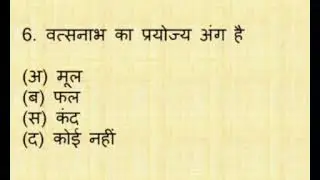 6. वत्सनाभ का प्रयोज्य अंग है
(अ) मूल
(ब) फल
(स) कंद
(द) कोई नहीं